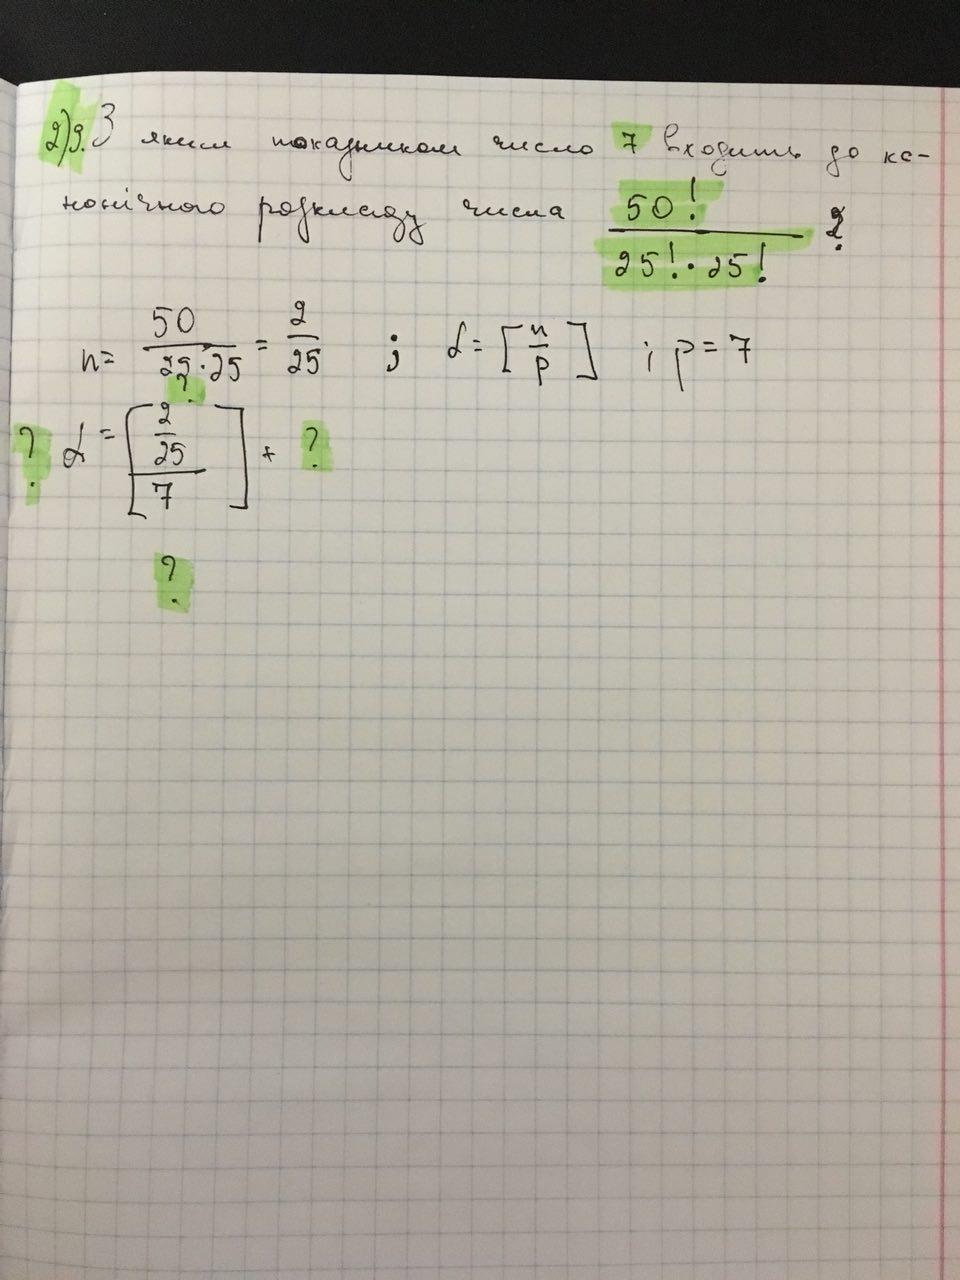 2)9. З яким показником число 7 входить до ка-
нонічного розкладу числа 50! / 25! · 25! ?
n = 50 / 25 · 25 = 2 / 25 ; α = [n / p] ; p = 7
?
? α = [2 / 25 / 7] + ?
?